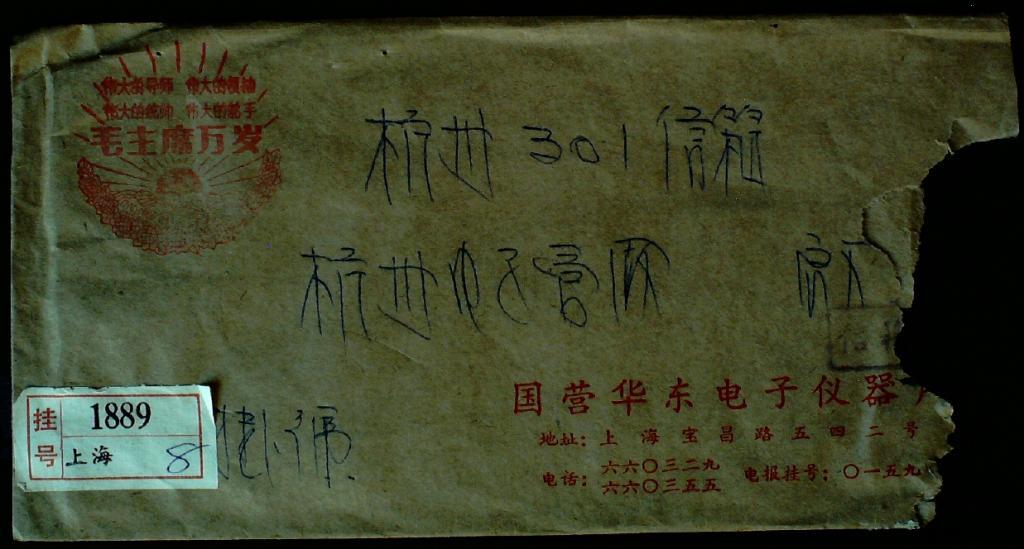 伟大的导师 伟大的领袖
伟大的统帅 伟大的舵手
毛主席万岁
杭州301信箱
杭州电子管厂
国营华东电子仪器
地址:上海宝昌路五四二号
电话:六六〇三二九
六六〇三五五
电报挂号:〇一五九
挂号
1889
上海
8
掛號